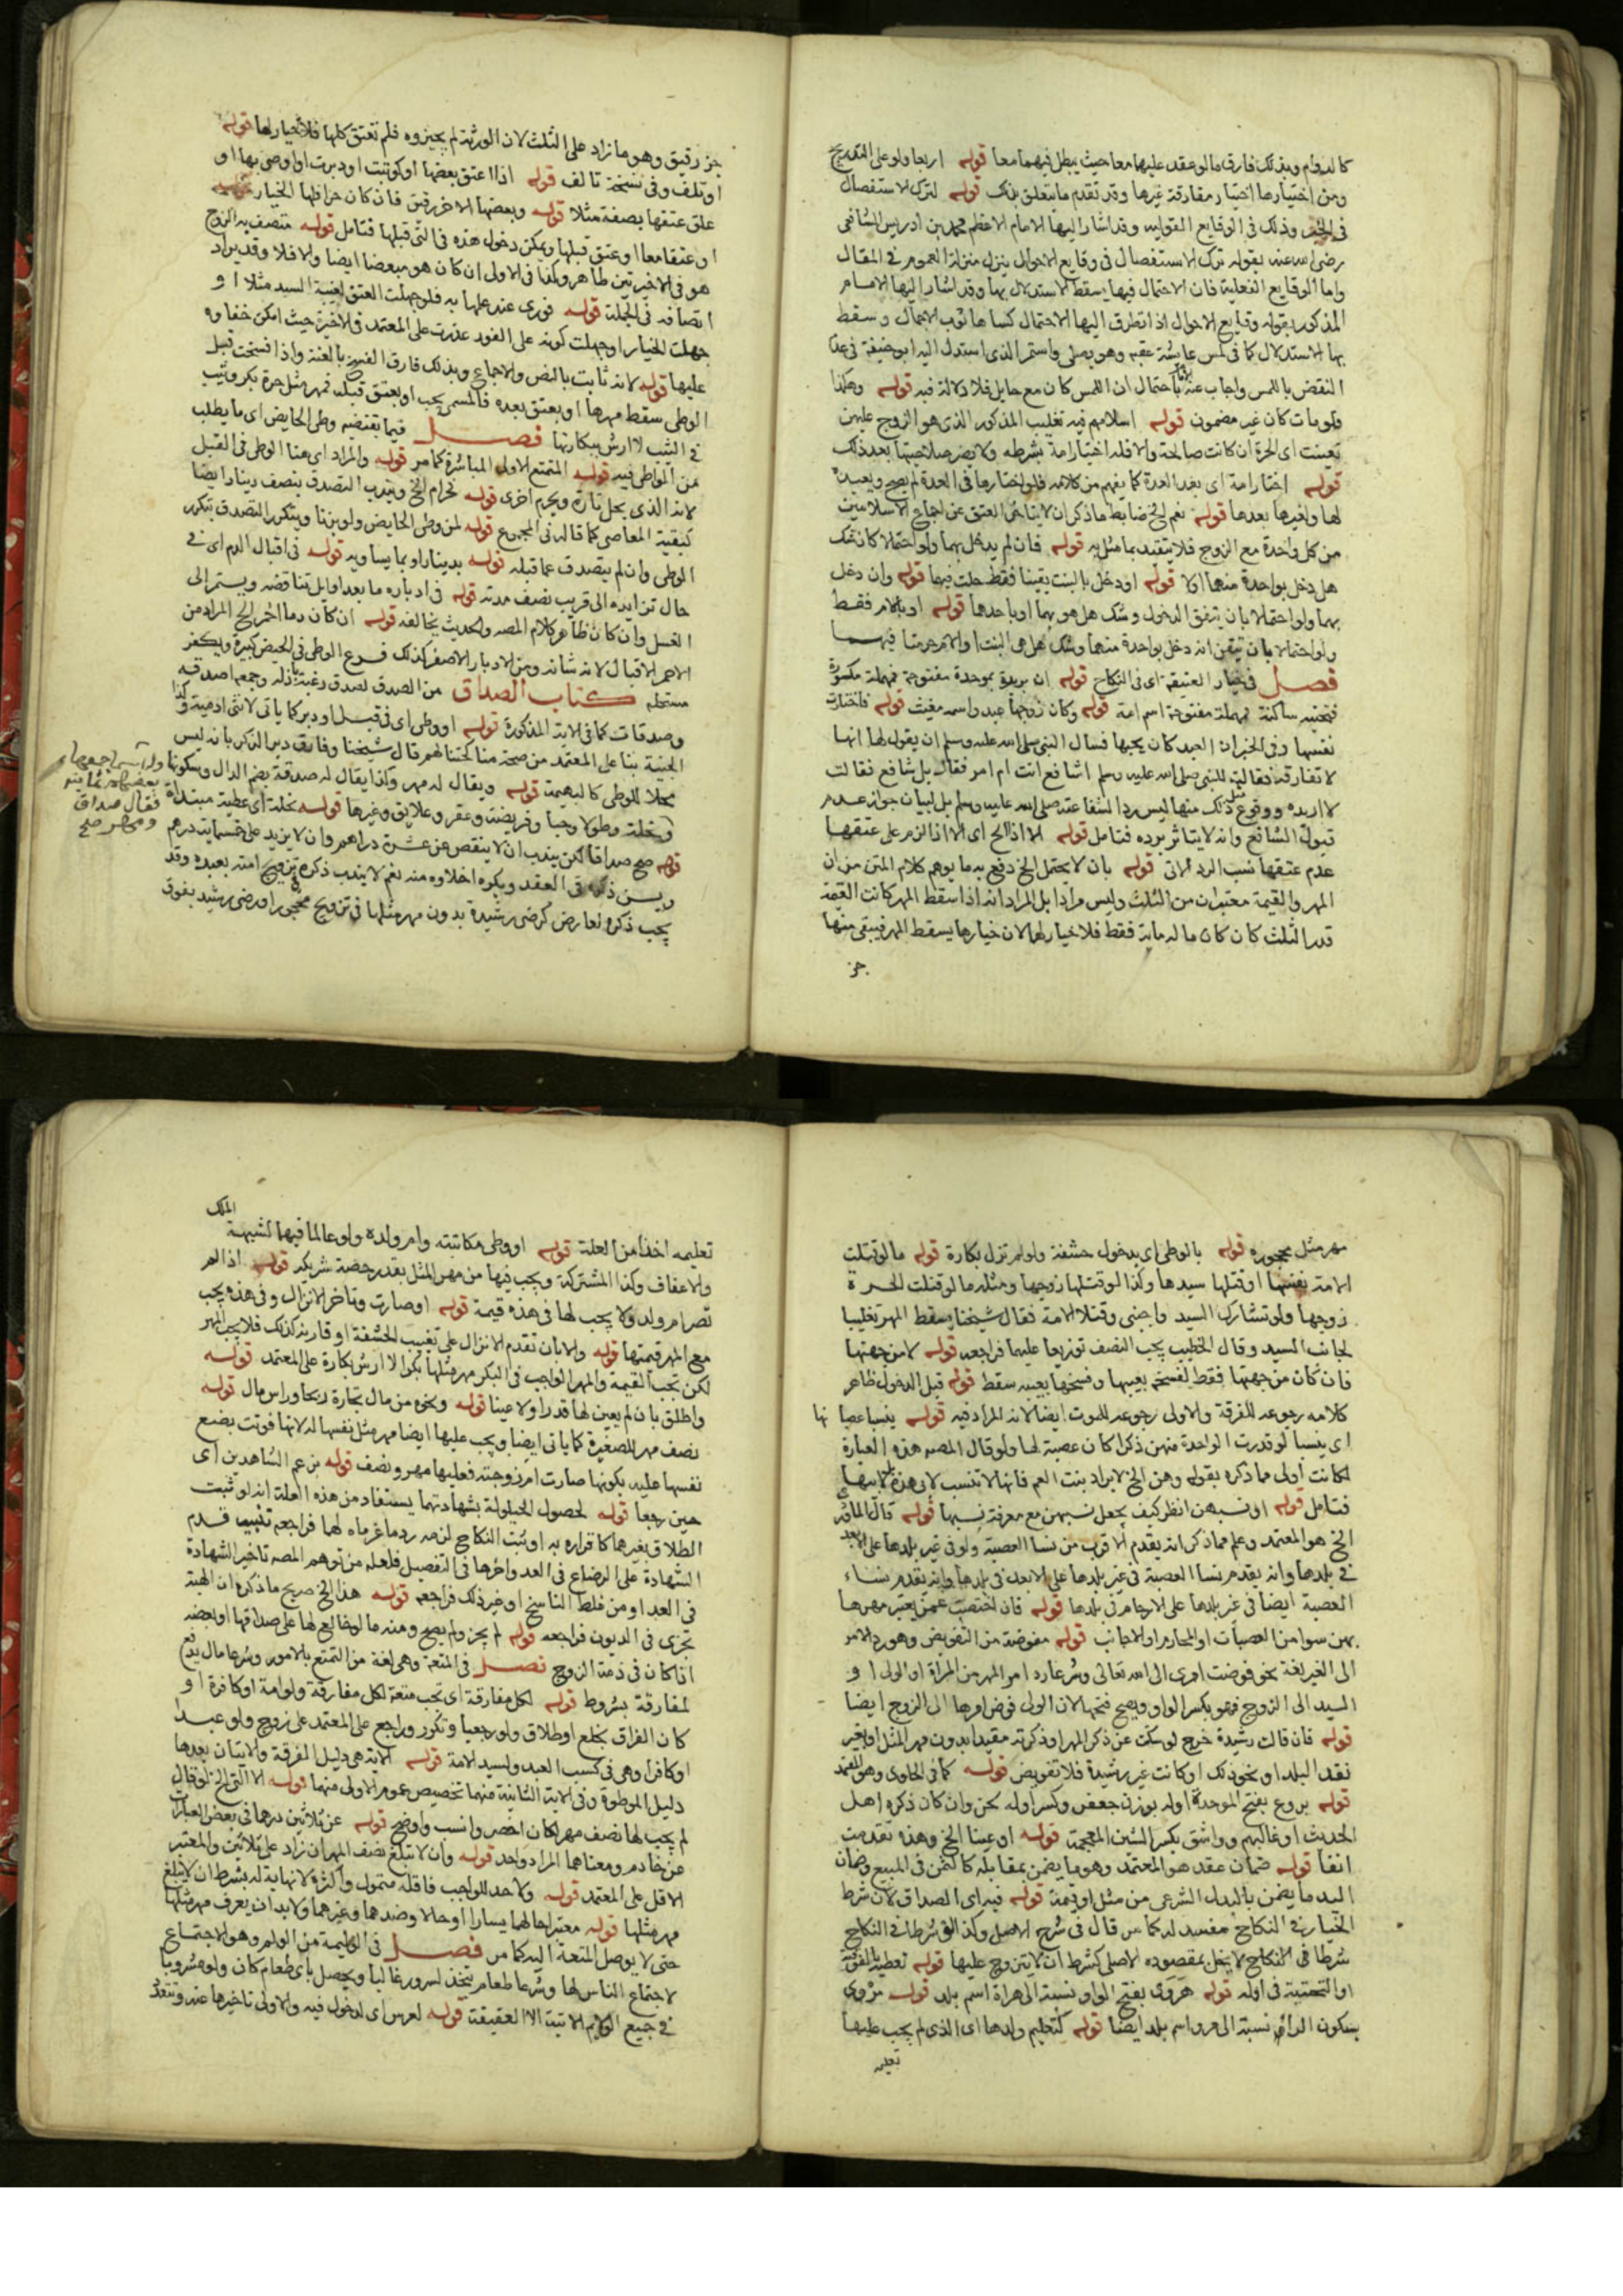 كالدوام وبذلك فارق ما لو عقد عليهما معا حيث يبطل فيهما معا قوله اربعا ولو على التدريج
ومن اختيارها اختيار مفارقة غيرها وقد تقدم ما يتعلق بذلك قوله لترك الاستفصال
في الخبر وذلك في الوقايع القولية وقد اشار اليها الامام الاعظم محمد بن ادريس الشافعي
رضي الله عنه بقوله ترك الاستفصال في وقايع الاحوال ينزل منزلة العموم في المقال
واما الوقايع الفعلية فان الاحتمال فيها يسقط الاستدلال بها وقد اشار اليها الامام
المذكور بقوله وقايع الاحوال اذا تطرق اليها الاحتمال كساها ثوب الاجمال وسقط
بها الاستدلال كما في لمس عايشة عقبه وهو يصلي واستمر الذي استدل اليه ابو حنيفة في عدم
النقض باللمس واجاب عنه باحتمال ان اللمس كان مع حايل فلا دلالة فيه قوله وهكذا
فلو مات كان غير مضمون قوله اسلامهم فيه تغليب المذكور الذي هو الزوج عليهن
تعينت اي الحرة ان كانت صالحة والا فله اختيار امة بشرطه ولا يضر صلاحيتها بعد ذلك
قوله اختار امة اي بعد العدة كما يفهم من كلامه فلو اختارها في العدة لم يصح ويعيده
لها ولغيرها بعدها قوله نعم الخ ضابط ما ذكر ان لا يتاخر العتق عن اجتماع الاسلامين
من كل واحدة مع الزوج فلا يتقيد بما مثل به قوله فان لم يدخل بهما ولو احتمالا كان شك
هل دخل بواحدة منهما اولا قوله او دخل بالبنت يقينا فقط حلت فيهما قوله وان دخل
بهما ولو احتمالا بان تيقن الدخول وشك هل هو بهما او باحدهما قوله او بالام فقط
ولو احتمالا بان تيقن انه دخل بواحدة منهما وشك هل هي البنت او الام حرمتا فيهما
فصل في خيار العتيقة اي في النكاح قوله ان بريرة بموحدة مفتوحة فمهملة مكسورة
فتحتية ساكنة فمهملة مفتوحة اسم امة قوله وكان زوجها عبد واسمه مغيث قوله فاختارت
نفسها وفي الخبر ان العبد كان يحبها فسال النبي صلى الله عليه وسلم ان يقول لها انها
لا تفارقه فقالت للنبي صلى الله عليه وسلم اشافع انت ام امر فقال بل شافع فقالت
لا اريده ووقوع مثل ذلك منها ليس ردا لشفاعته صلى الله عليه وسلم بل لبيان جواز عدم
قبول الشافع وانه لا يتاثر برده فتامل قوله الا اذا الخ اي الا اذا لزم على عتقها
عدم عتقها نسب الرد الاتي قوله بان لا يحتمل الخ دفع به ما يوهم كلام المتن من ان
المهر والقيمة معتبران من الثلث وليس مرادا بل المراد انه اذا سقط المهر كانت القيمة
قدر الثلث كان كان ماله مائة فقط فلا خيار لها لان خيارها يسقط المهر فيبقى منها
جز
جز رقيق وهو ما زاد على الثلث لان الورثة لم يجيزوه فلم تعتق كلها فلا خيار لها قوله
او تلف وفي نسخة تالف قوله اذا اعتق بعضها او كوتبت او دبرت او اوصى بها او
علق عتقها بصفة مثلا قوله وبعضها الاخر رقيق فان كان حرا فلها الخيار
او عتقا معا او عتق قبلها ويمكن دخول هذه في التي قبلها فتامل قوله متصف به الزوج
هو في الاخيرتين ظاهر وكذا في الاولى ان كان هو مبعضا ايضا والا فلا وقد يراد
اتصافه في الجملة قوله فوري عند علمها به فلو جهلت العتق لغيبة السيد مثلا او
جهلت الخيار او جهلت كونه على الفور عذرت على المعتمد في الاخيرة حيث امكن خفاوه
عليها قوله لانه ثابت بالنص والاجماع وبذلك فارق الفسخ بالعنة واذا فسخت قبل
الوطي سقط مهرها او بعتق بعده فالمسمى يجب او بعتق قبله فمهر مثل حرة بكر وثيب
في الثيب لا ارش ببكارتها فصل فيما يقتضيه وطي الحايض اي ما يطلب
من الواطي فيه قوله المتمتع الاولى المباشرة كما مر قوله والمراد اي هنا الوطي في القبل
لانه الذي يحل تارة ويحرم اخرى قوله تحرام الخ ويندب التصدق بنصف دينار ايضا
كبقية المعاصي كما قاله في المجموع قوله لمن وطي الحايض ولو بزنا ويتكرر التصدق بتكرر
الوطي وان لم يتصدق عما قبله قوله بدينار او بما يساويه قوله في اقبال الدم اي في
حال تزايده الى قريب نصف مدته قوله في ادباره ما بعد اوايل تناقصه ويستمر الى
الغسل وان كان ظاهر كلام المصه والحديث يخالفه قوله ان كان دما احمر الخ المراد من
الاحمر الاقبال لانه شانه ومن الادبار الاصفر كذلك فرع الوطي في الحيض كبيرة ويكفر
مستحله كتاب الصداق من الصدق لصدق رغبة باذله وجمعه اصدقة
وصدقات كما في الاية المذكورة قوله او وطي اي في قبل او دبر كما ياتي لانثى ادمية وكذا
الجنية بنا على المعتمد من صحة مناكحتنا لهم قال شيخنا وفارق دبر الذكر بانه ليس
محلا للوطي كالبهيمة قوله ويقال له مهر وكذا يقال له صدقة بضم الدال وسكونها
ونحلة وطولا وحبا وفريضة وعقر وعلايق وغيرها قوله نحلة اي عطية مبتداة
قوله صح صداقا لكن يندب ان لا ينقص عن عشرة دراهم وان لا يزيد على خمسماية درهم
ويسن ذكره في العقد ويكره اخلاوه منه نعم لا يندب ذكره في تزويج امته بعبده وقد
يجب ذكره لعارض كرضى رشيدة بدون مهر مثلها في تزويج محجور او رضى رشيد بفوق
وله اسما جمعها
بعضهم ثمانية
فقال صداق
ومهر صح
مهر مثل محجوره قوله بالوطي اي بدخول حشفة ولو لم تزل بكارة قوله ما لو قتلت
الامة نفسها او قتلها سيدها وكذا لو قتلها زوجها ومثله ما لو قتلت الحرة
زوجها ولو تشارك السيد واجنبي وقتلا الامة فقال شيخنا يسقط المهر تغليبا
لجانب السيد وقال الخطيب يجب النصف توزيعا عليهما فراجعه قوله لا من جهتها
فان كان من جهتها فقط لفسخه بعيبها وفسخها بعيبه سقط قوله قبل الدخول ظاهر
كلامه رجوعه للفرقة والاولى رجوعه للموت ايضا لانه المراد فيه قوله بنسا عصباتها
اي بنسا لو قدرت الواحدة منهن ذكرا كان عصبة لها ولو قال المصه هذه العبارة
لكانت اولى مما ذكره بقوله وهن الخ لا يراد بنت العم فانها لا تنسب لابي هذه بل لابيها
فتامل قوله او نسبهن انظر كيف يجعل نسبهن مع معرفة نسبها قوله قال الماوردي
الخ هو المعتمد وعلم مما ذكر انه يقدم الاقرب من نسا العصبة ولو في غير بلدها على الابعد
في بلدها وانه يقدم نسا العصبة في غير بلدها على الابعد في بلدها وانه تقدم نساء
العصبة ايضا في غير بلدها على الارحام في بلدها قوله فان اختصت عنهن يعتبر مهرها
بهن سوا من العصبات او المحارم او الاجانب قوله مفوضة من التفويض وهو رد الامر
الى الغير لغة نحو فوضت امري الى الله تعالى وشرعا رد امر المهر من المراة او الولي او
السيد الى الزوج فهو بكسر الواو ويصح فتحها لان الولي فوض امرها الى الزوج ايضا
قوله فان قالت رشيدة خرج لو سكتت عن ذكر المهر او ذكرته مقيدا بدون مهر المثل او بغير
نقد البلد او نحو ذلك او كانت غير رشيدة فلا تفويض قوله كما في الحاوي وهو المعتمد
قوله بروع بفتح الموحدة اوله بوزن جعفر وكسر اوله لحن وان كان ذكره اهل
الحديث او غالبهم وواشق بكسر الشين المعجمة قوله او عينا الخ وهذه تقدمت
انفا قوله ضمان عقد هو المعتمد وهو ما يضمن بمقابله كالثمن في المبيع وضمان
اليد ما يضمن بالبدل الشرعي من مثل او قيمة قوله فيه اي الصداق لان شرط
الخيار في النكاح مفسد له كما مر قال في شرح الاصل وكذا لو شرطا في النكاح
شرطا في النكاح لا يخل بمقصوده الاصلي كشرط ان لا يتزوج عليها قوله تعطيه بالفوقية
او التحتية في اوله قوله هروي بفتح الواو نسبة الى هراة اسم بلد قوله مروي
بسكون الراء نسبة الى مرو اسم بلد ايضا قوله كتعليم ولدها اي الذي لم يجب عليها
تعليمه
تعليمه اخذا من العلة قوله او وطي مكاتبته وام ولده ولو عالما فيهما لشبهة الملك
والاعفاف وكذا المشتركة ويجب فيها من مهر المثل بقدر حصة شريكه قوله اذا لم
تصر ام ولد ولا يجب لها في هذه قيمة قوله او صارت وتاخر الانزال وفي هذه يجب
مع المهر قيمتها قوله والا بان تقدم الانزال على تغييب الحشفة او قارنه كذلك فلا يجب المهر
لكن تجب القيمة والمهر الواجب في البكر مهر مثلها بكرا لا ارش بكارة على المعتمد قوله
واطلق بان لم يعين لها قدرا ولا عينا قوله ونحوه من مال تجارة ربحا وراس مال قوله
نصف مهر للصغيرة كما ياتي ايضا ويجب عليها ايضا مهر مثل نفسها له لانها فوتت بضع
نفسها عليه بكونها صارت ام زوجته فعليها مهر ونصف قوله بزعم الشاهدين اي
حين رجعا قوله لحصول الحيلولة بشهادتهما يستفاد من هذه العلة انه لو ثبت
الطلاق بغيرهما كاقراره به او ثبت النكاح لزمه رد ما غرماه لها فراجعه تنبيه قدم
الشهادة على الرضاع في العد واخرها في التفصيل فلعله من توهم المصه تاخير الشهادة
في العد او من غلط الناسخ او غير ذلك فراجعه قوله هذا الخ صريح ما ذكره ان الهبة
تجزي في الديون فراجعه قوله لم يجز ولم يصح ومنه ما لو خالع لها على صداقها او بعضه
اذا كان في ذمة الزوج فصل في المتعة وهي لغة من التمتع بالامور وشرعا مال يدفع
لمفارقة بشروط قوله لكل مفارقة اي تجب متعة لكل مفارقة ولو امة او كافرة او
كان الفراق بخلع او طلاق ولو رجعيا وتكرر وراجع على المعتمد على زوج ولو عبدا
او كافرا وهي في كسب العبد ولسيد الامة قوله الاية هي دليل المفرقة والايتان بعدها
دليل الموطوة وفي الاية الثانية منهما تخصيص عموم الاولى منهما قوله الا التي الخ لو قال
لم يجب لها نصف مهر لكان اخصر وانسب واوضح قوله عن ثلاثين درهما في بعض العبارات
عن خادم ومعناهما المراد واحد قوله وان لا تبلغ نصف المهر ان زاد على ثلاثين والمعتبر
الاقل على المعتمد قوله ولا حد للواجب فاقله متمول واكثره لا نهاية له بشرط ان لا يبلغ
مهر مثلها قوله معتبرا حالهما يسارا او حالا وضدهما وغيرهما ولا بد ان يعرف مهر مثلها
حتى لا يوصل المتعة اليه كما مر فصل في الوليمة من الولم وهو الاجتماع
لاجتماع الناس لها وشرعا طعام يتخذ لسرور غالبا ويحصل باي طعام كان ولو مشروبا
في جميع الولايم الاتية الا العقيقة قوله لعرس اي لدخول فيه والاولى تاخيرها عنه وتتعدد